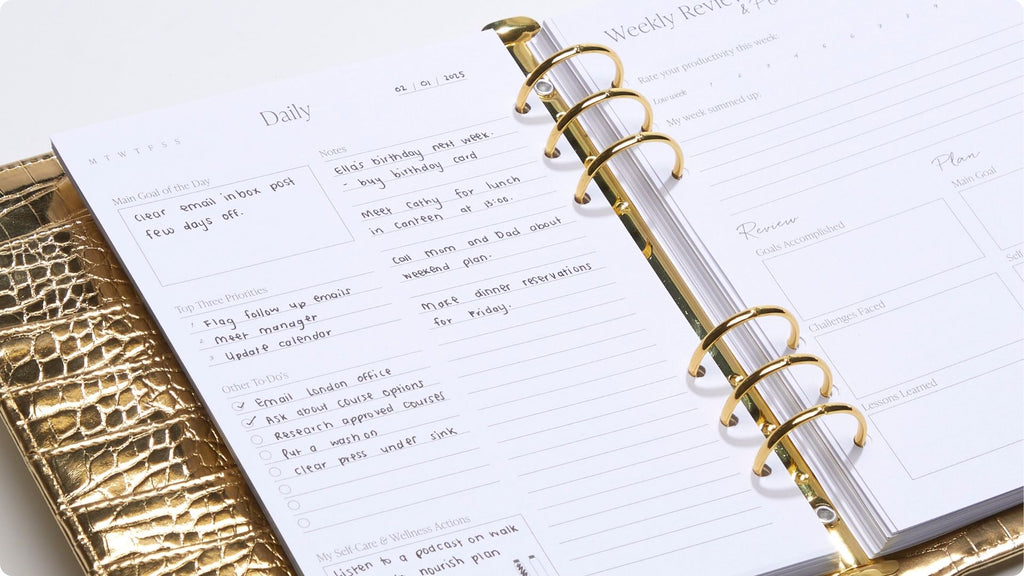 Daily
02 / 01 / 2025
M T W T F S S
Main Goal of the Day
Clear email inbox post
few days off.
Top Three Priorities
1 Flag follow up emails
2 Meet manager
3 Update calendar
Other To-Do's
Email London office
Ask about course options
Research approved courses
Put a wash on
Clear press under sink
My Self-Care & Wellness Actions
Listen to a podcast on walk
nourish plan
Notes
Ella's birthday next week.
- buy birthday card
Meet Cathy for lunch
in canteen at 13:00.
Call Mom and Dad about
weekend plan.
More dinner reservations
for Friday.
Weekly Review
&
Rate your productivity this week:
Low week
My week summed up:
Review
Goals Accomplished
Challenges Faced
Lessons Learned
Plan
Main Goal